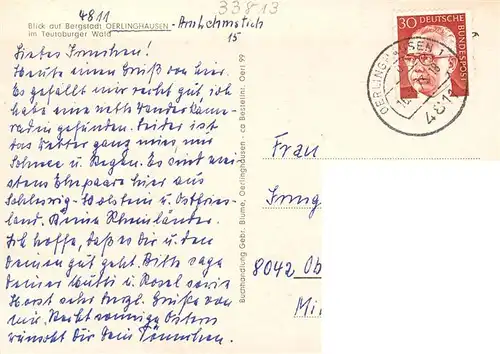 33813
4811
Blick auf Bergstadt OERLINGHAUSEN -
im Teutoburger Wald
15
Liebes Irmchen!
Heute einen Gruß von hier.
Es gefällt mir recht gut, ich
habe eine nette Wanderkame-
radin gefunden. Leider ist
das Wetter ganz mies, nur
Schnee u. Regen. Es sind mei-
stens Ehepaare hier aus
Schleswig-Holstein u. Ostfries-
land. Keine Rheinländer.
Ich hoffe, daß es Dir u. den
Deinen gut geht. Bitte sage
Deiner Mutti u. Rosel sowie
Horst sehr hrzl. Grüße von
mir. Recht sonnige Ostern
wünscht Dir Dein Tönnchen.
Buchhandlung Gebr. Blume, Oerlinghausen - ca Bestellnr. Oerl 99
30 DEUTSCHE
BUNDESPOST
OERLINGHAUSEN 1
4811
Frau
Irmg
8042 Ob
Mi